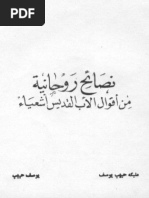 نصائح روحانية
من أقوال الأب القديس أشعياء
مليكه حبيب يوسف
يوسف حبيب